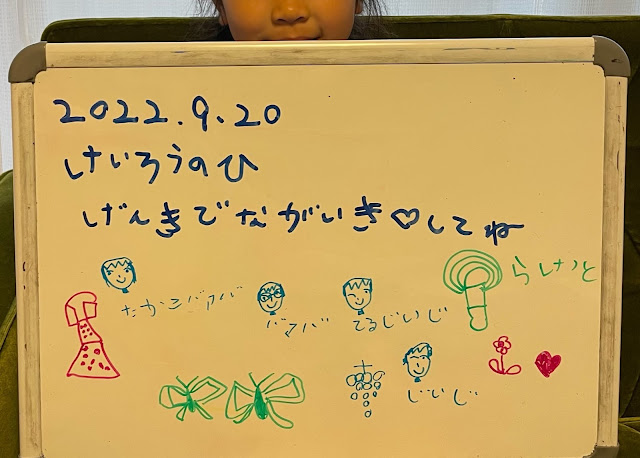 2022.9.20
けいろうのひ
げんきでながいき♡してね
らけっと
たかこばあば
ばあば
てるじいじ
じいじ